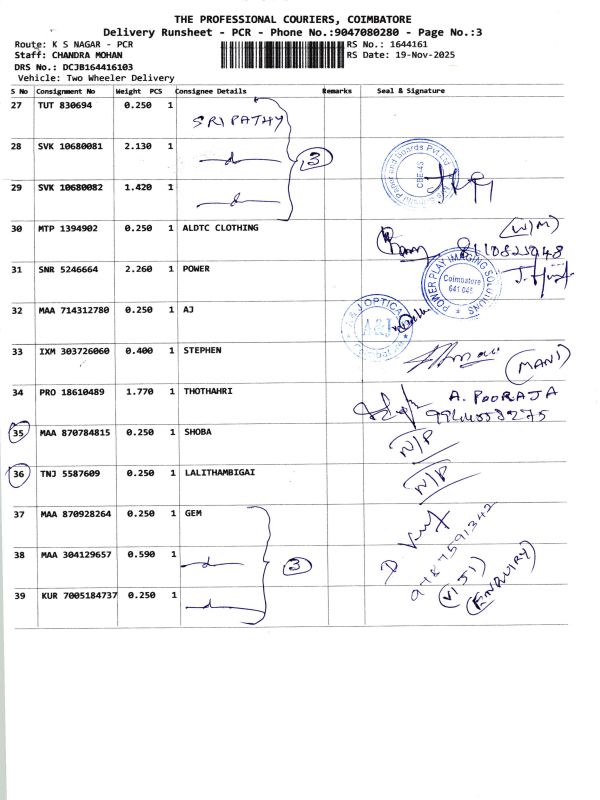 THE PROFESSIONAL COURIERS, COIMBATORE
Delivery Runsheet - PCR - Phone No.:9047080280 - Page No.:3
Route: K S NAGAR - PCR
RS No.: 1644161
Staff: CHANDRA MOHAN
RS Date: 19-Nov-2025
DRS No.: DCJB164416103
Vehicle: Two Wheeler Delivery
S No Consignment No Weight PCS Consignee Details Remarks Seal & Signature
27 TUT 830694 0.250 1 SRIPATHY
28 SVK 10680081 2.130 1
3
CBE-45
29 SVK 10680082 1.420 1
30 MTP 1394902 0.250 1 ALDTC CLOTHING
(W/M)
31 SNR 5246664 2.260 1 POWER
POWER PLAY IMAGING SOLUTIONS
Coimbatore
641 045
32 MAA 714312780 0.250 1 AJ
A & J OPTICA
A&J
33 IXM 303726060 0.400 1 STEPHEN
(MANI)
34 PRO 18610489 1.770 1 THOTHAHRI
A. POORAJA
9944558275
35 MAA 870784815 0.250 1 SHOBA N/P
36 TNJ 5587609 0.250 1 LALITHAMBIGAI N/P
37 MAA 870928264 0.250 1 GEM
38 MAA 304129657 0.590 1
3
9787591342
(VIJI)
(ENQUIRY)
39 KUR 7005184737 0.250 1